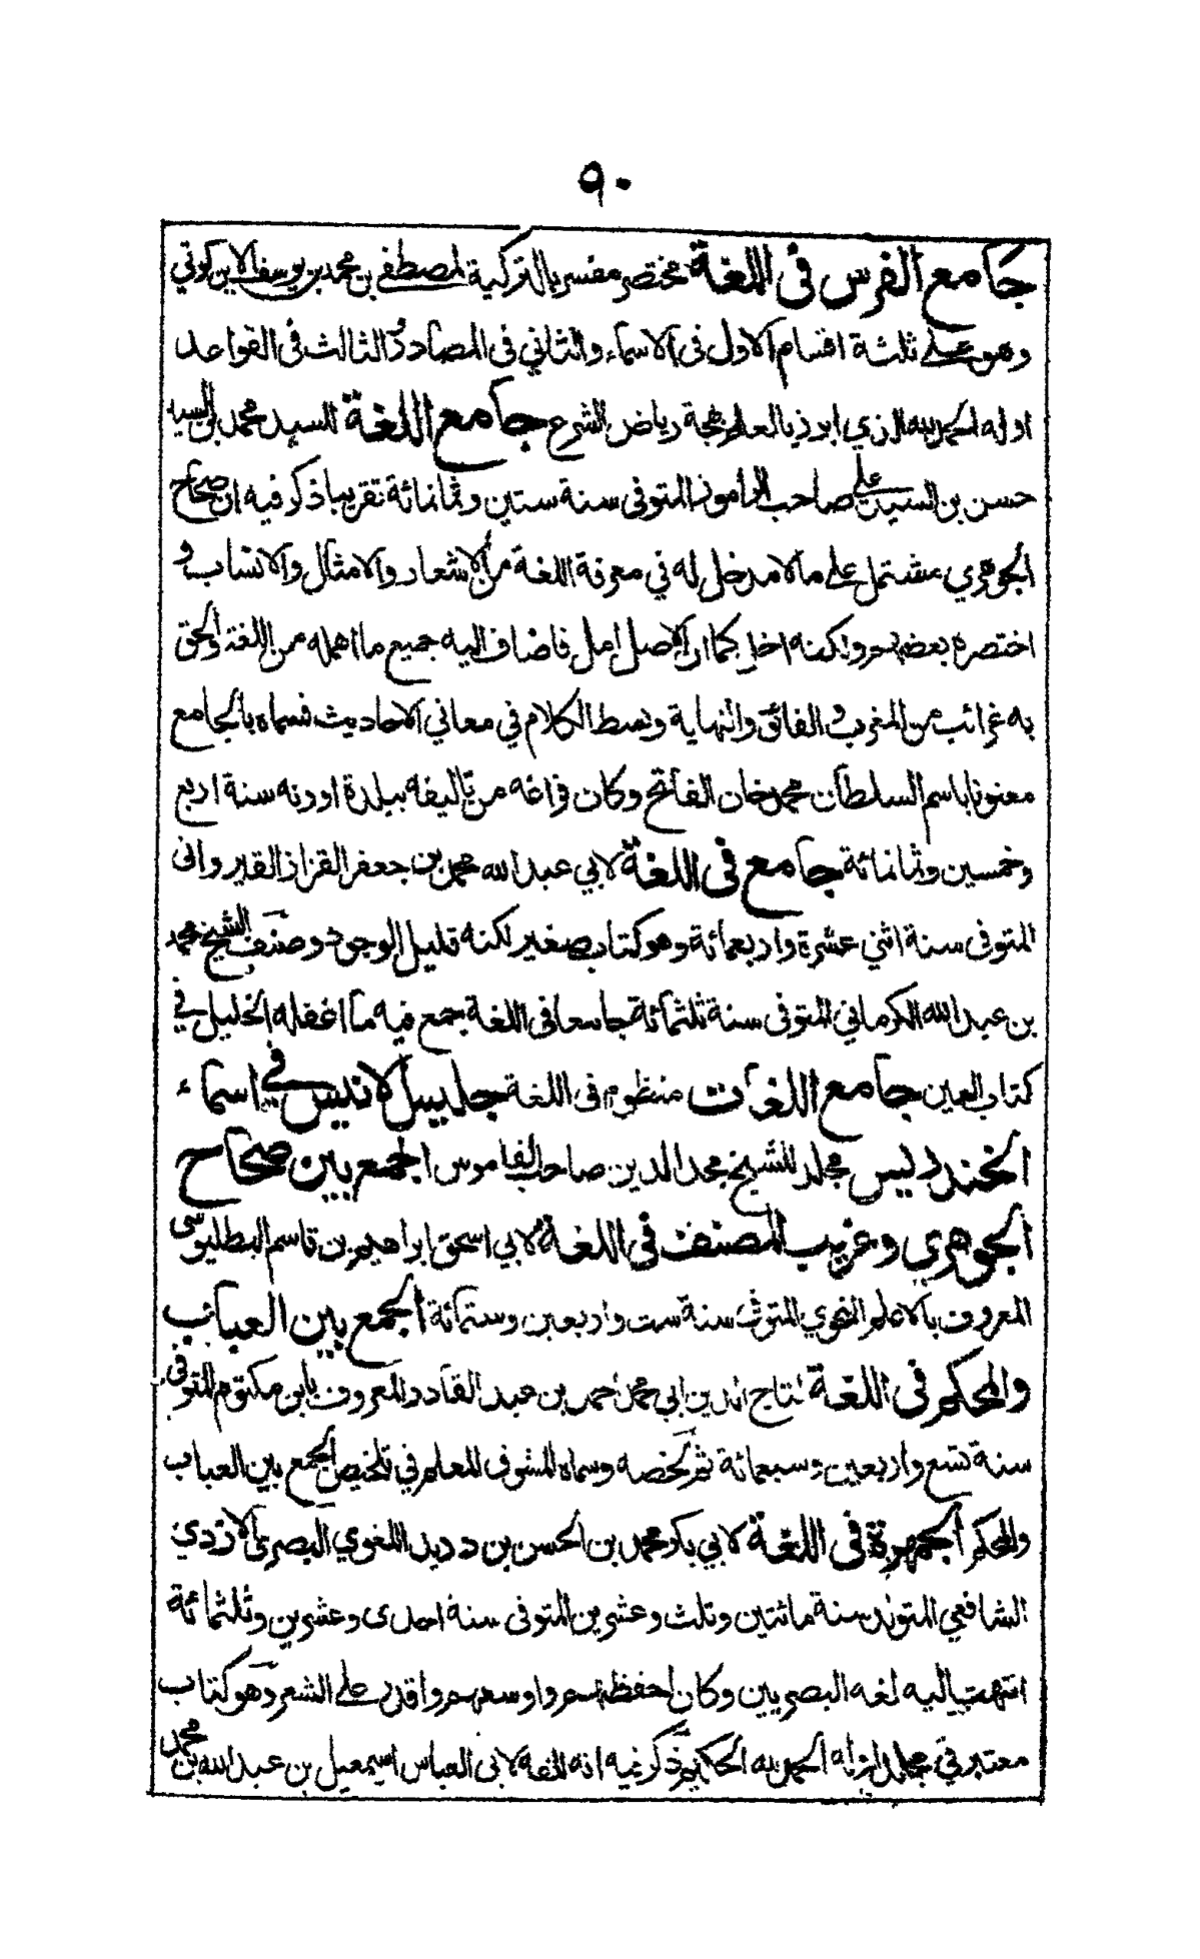 ٩٠
جامع الفرس فى اللغة مختصر مفسر بالتركية لمصطفى بن محمد بن يوسف الاين كوتي
وهو على ثلثة اقسام الاول فى الاسماء والثاني فى المصادر والثالث فى القواعد
اوله الحمد لله الذي ابرز بالعلم بهجة رياض الشرع جامع اللغة للسيد محمد بن السيد
حسن بن السيد على صاحب الراموز المتوفى سنة ستين وثمانمائة تقريبا ذكر فيه ان صحاح
الجوهري مشتمل على ما لا مدخل له في معرفة اللغة من الاشعار والامثال والانساب و
اختصره بعضهم ولكنه اخل كما ان الاصل امل فاضاف اليه جميع ما اهمله من اللغة والحق
به غرائب من المغرب و الفائق والنهاية وبسط الكلام في معاني الاحاديث فسماه بالجامع
معنونا باسم السلطان محمد خان الفاتح وكان فراغه من تاليفه ببلدة اورنه سنة اربع
وخمسين وثمانمائة جامع فى اللغة لابي عبد الله محمد بن جعفر القزاز القيرواني
المتوفى سنة اثني عشرة واربعمائة وهو كتاب صغير لكنه قليل الوجود وصنف الشيخ محمد
بن عبد الله الكرماني المتوفى سنة ثلثمائة جامعا فى اللغة جمع فيه ما اغفله الخليل في
كتاب العين جامع اللغات منظوم فى اللغة جليس الانيس في اسماء
الخندريس مجلد للشيخ مجد الدين صاحب القاموس الجمع بين صحاح
الجوهري وغريب المصنف فى اللغة لابي اسحق ابراهيم بن قاسم البطليوسى
المعروف بالاعلم النحوي المتوفى سنة ست واربعين وستمائة الجمع بين العباب
والمحكم فى اللغة لتاج الدين ابي محمد احمد بن عبد القادر المعروف بابن مكتوم المتوفى
سنة تسع واربعين وسبعمائة ثم لخصه وسماه المشوف المعلم في تلخيص الجمع بين العباب
والمحكم الجمهرة فى اللغة لابي بكر محمد بن الحسن بن دريد اللغوي البصرى الازدي
الشافعي المتولد سنة مائتين وثلث وعشرين المتوفى سنة احدى وعشرين وثلثمائة
انتهت اليه لغه البصريين وكان احفظهم واوسعهم واقدر على الشعر وهو كتاب
معتبر في مجلد اوله الحمد لله الحكيم ذكر فيه انه الفه لابى العباس اسمعيل بن عبد الله بن محمد